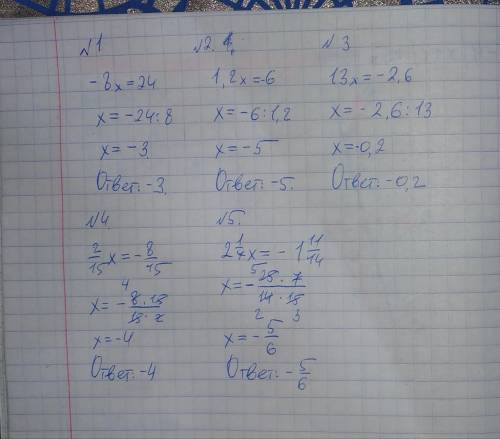 №1
-8x=24
x=-24:8
x=-3.
Ответ: -3.
№2.
1,2x=-6
x=-6:1,2
x=-5
Ответ: -5.
№3
13x=-2,6
x=-2,6:13
x=-0,2
Ответ: -0,2
№4.
2/15 x=-8/15
x=-8·15/15·2
4
x=-4
Ответ: -4
№5.
2 1/7 x=-1 11/14
5
x=-25·7/14·15
2 3
x=-5/6
Ответ: -5/6